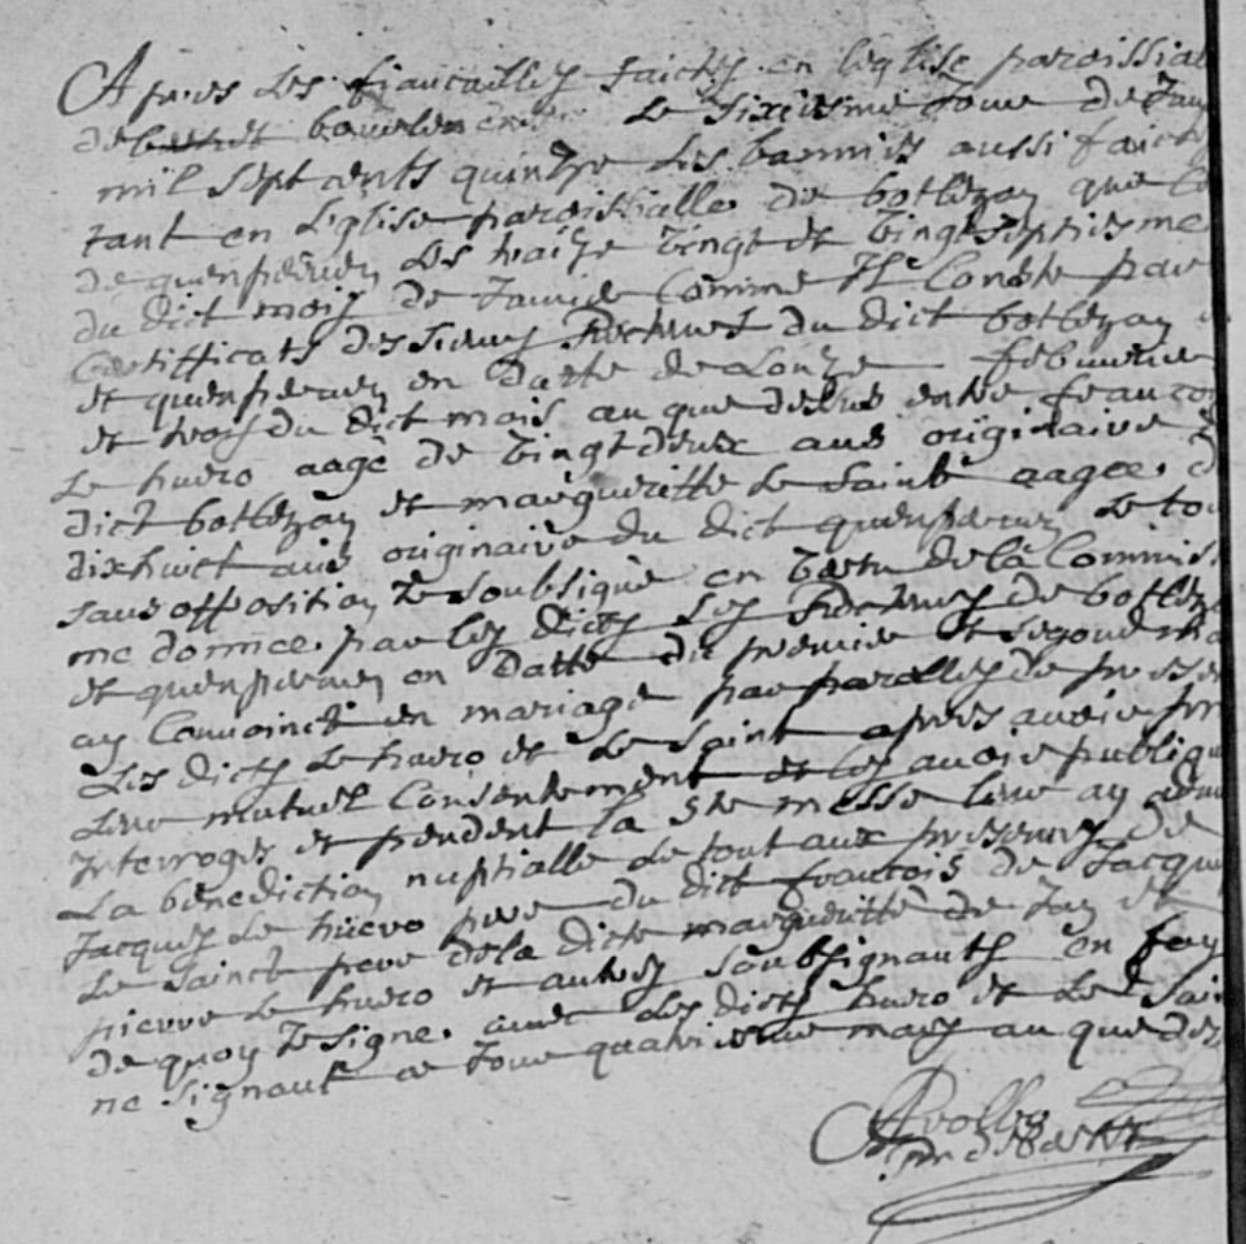 Apres les fiancailles faictes en leglise paroissial
de le sixiesme jour de Janv
mil sept cents quinze les bannies aussi faictes
tant en leglise paroissialle de botlezan que
de quenperven les traize vingt et vingtseptiesme
du dict mois de Janvie comme il conste par
certifficats des sieurs Recteurs du dict botlezan
et quenperven en datte de lonze febvrie
et trois du dict mois an que dessus entre francois
Le huero aagé de vingt deux ans originaire d
dict botlezan et margueritte Le Saint aagee d
dixhuict ans originaire du dict quenperven Le tou
sans opposition Je soubsigné en vertu de la Commis
me donnee par les dicts Srs Recteurs de botlez
et quenperven en datte du premie et segond
ay Conuoinct en mariage par parolles de presen
Les dicts Le huero et Le Saint apres avoir pri
Leur mutuel Consentement et les avoir publiqu
Interrogés et pendent la Ste messe leur ay donn
La benediction nuptialle Le tout aux presences de
Jacques Le huero pere du dict francois de Jacque
Le Sainct pere de la dicte margueritte de Jan et
pierre Le huero et autres soubsignants en foy
de quoy Je signe avec Les dicts huero et Le Sain
ne signant ce jour quatriesme mars an que des